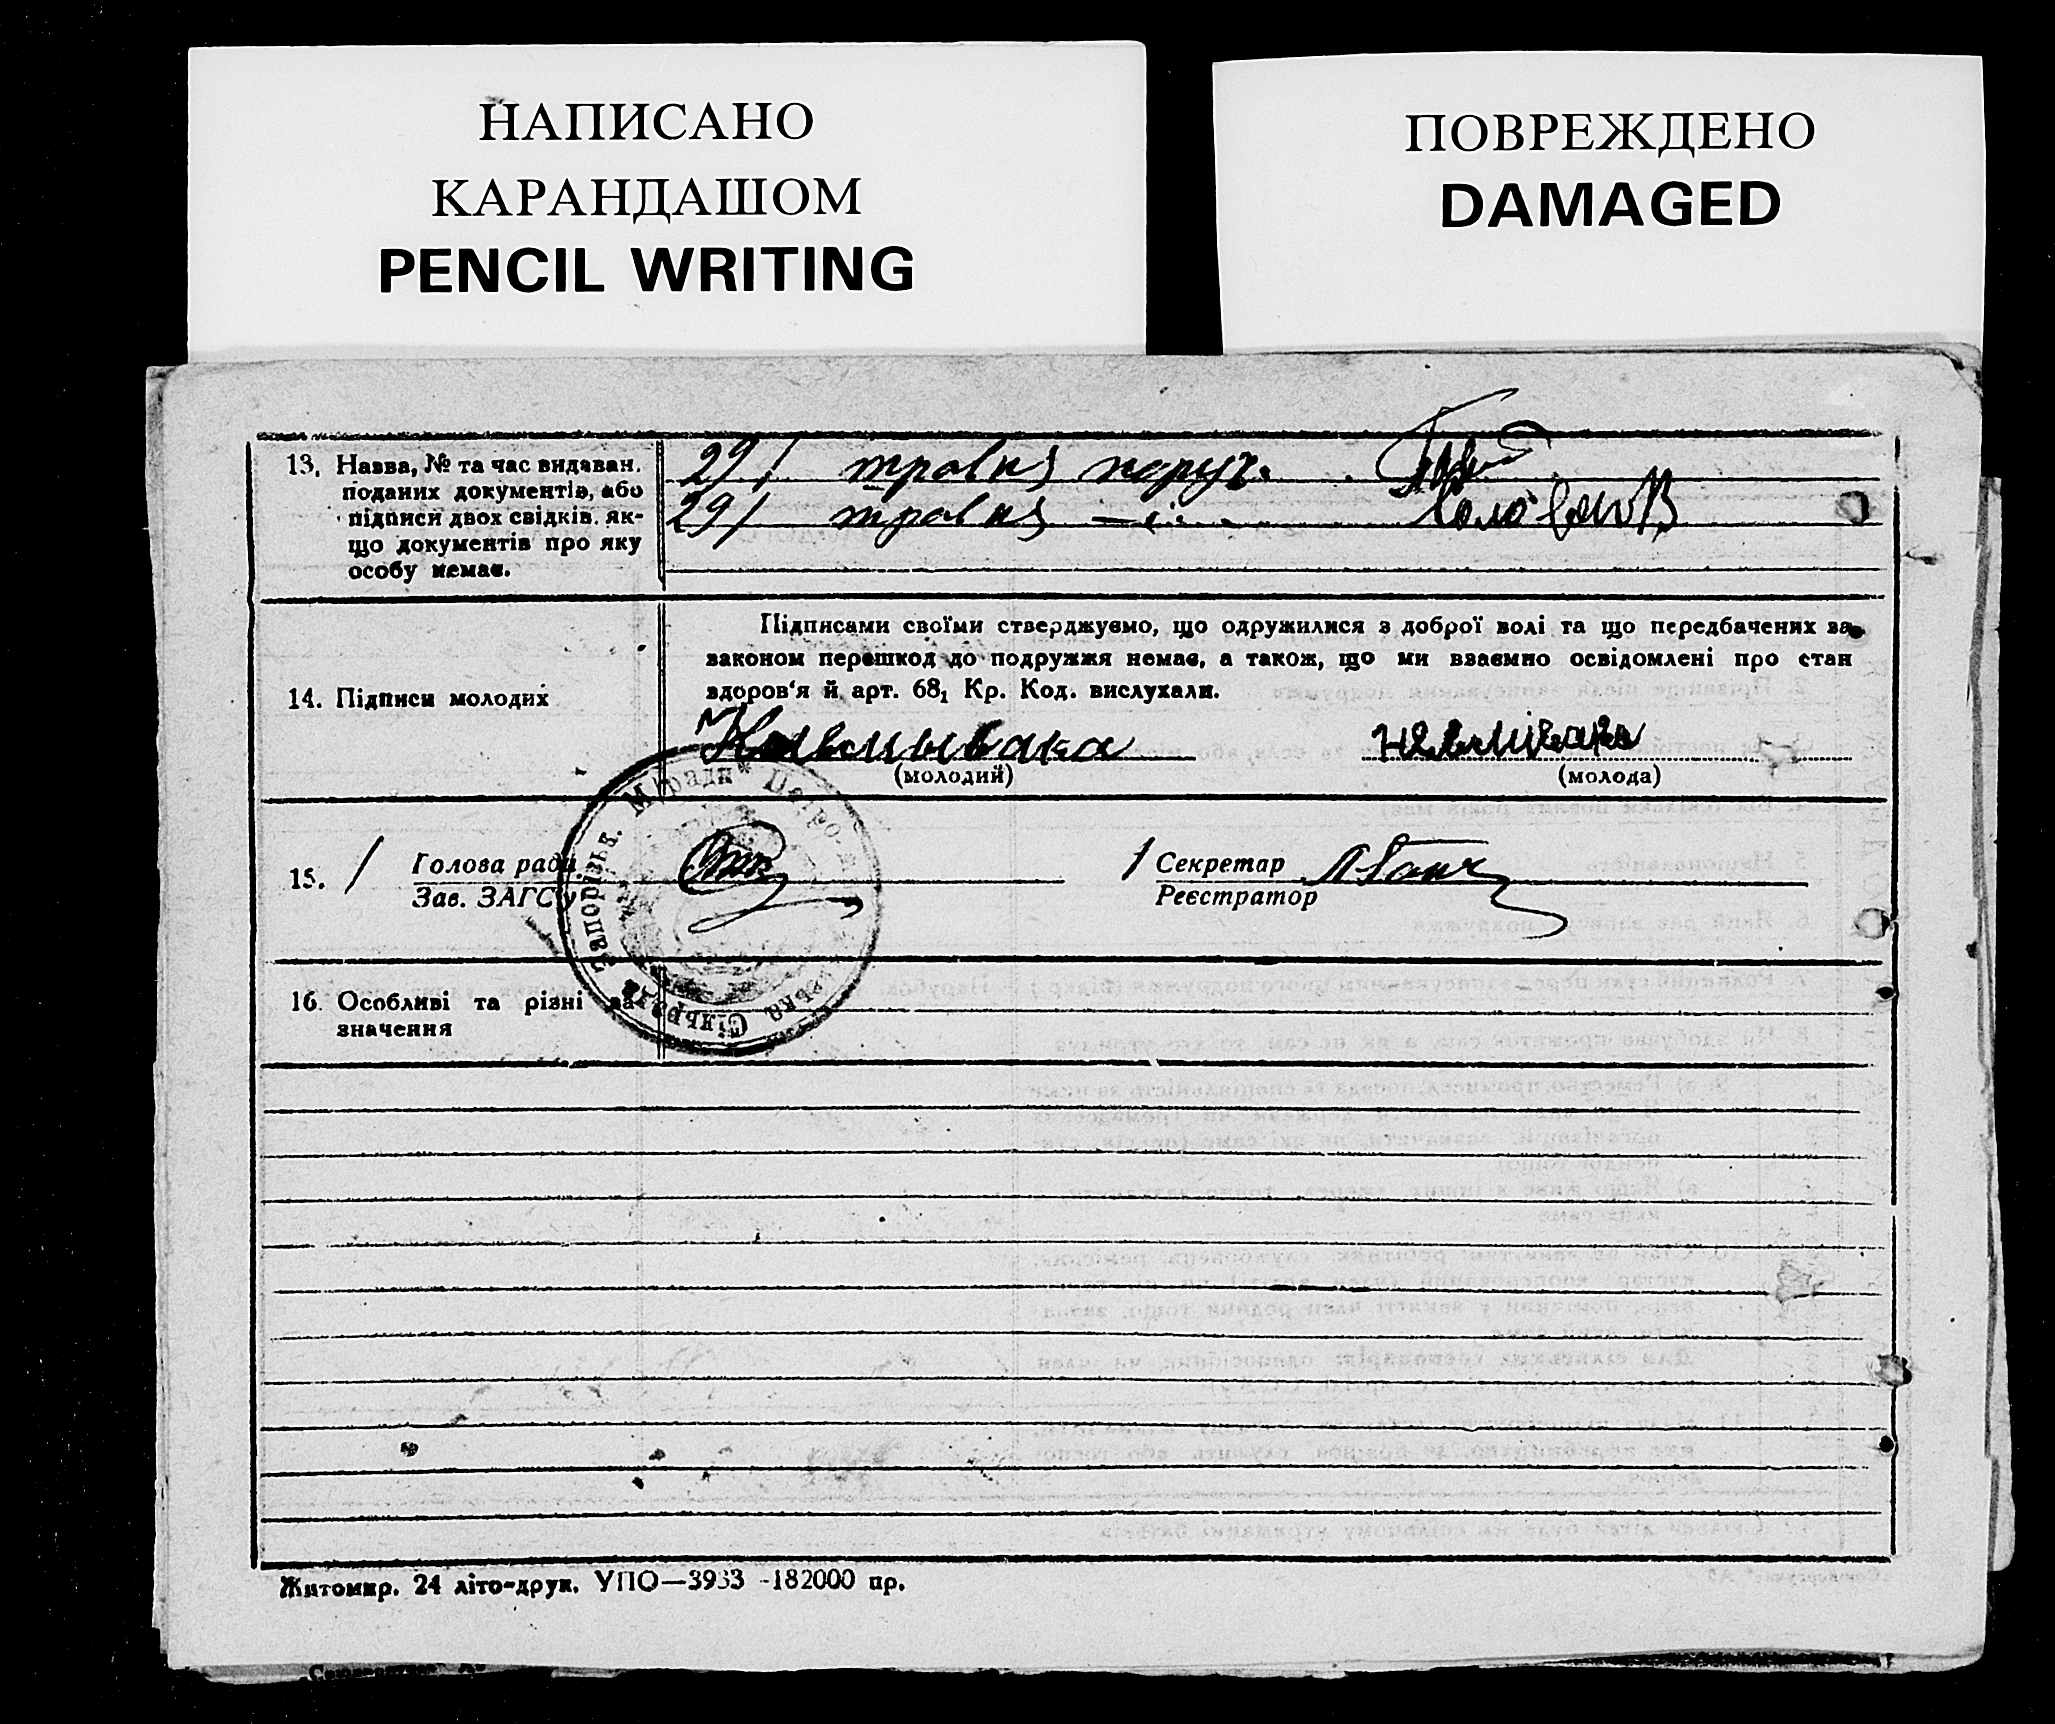 НАПИСАНО
КАРАНДАШОМ
PENCIL WRITING
ПОВРЕЖДЕНО
DAMAGED
13. Назва, № та час видаван.
поданих документів, або
підписи двох свідків, як-
що документів про яку
особу немає.
29/ травня поруч.
29/ травня —"—
14. Підписи молодих
Підписами своїми стверджуємо, що одружилися з доброї волі та що передбачених за
законом перешкод до подружжя немає, а також, що ми взаємно освідомлені про стан
здоров'я й арт. 68₁ Кр. Код. вислухали.
(молодий)
(молода)
15. / Голова ради
Зав. ЗАГС'у
/ Секретар
Реєстратор
Запорізьк. М/ради * Петро
ська Сільрада
16. Особливі та різні за-
значення
Житомир. 24 літо-друк. УПО—3933 -182000 пр.